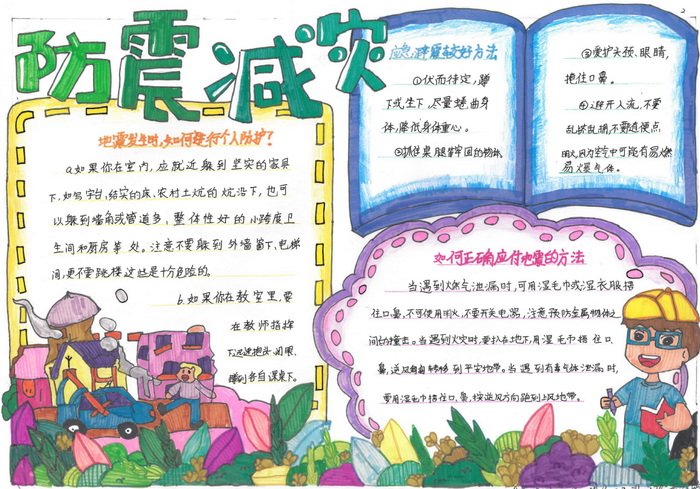 防震减灾
地震发生时,如何进行个人防护?
a.如果你在室内,应就近躲到坚实的家具
下,如写字台、结实的床、农村土炕的炕沿下,也可
以躲到墙角或管道多、整体性好的小跨度卫
生间和厨房等处。注意不要躲到外墙窗下、电梯
间,更不要跳楼,这些是十分危险的。
b.如果你在教室里,要
在教师指挥
下迅速抱头、闭眼、
躲到各自课桌下。
应急避震较好方法
①伏而待定,蹲
下或坐下,尽量蜷曲身
体,降低身体重心。
②抓住桌腿等牢固的物体。
③爱护头颈、眼睛,
掩住口鼻。
④避开人流,不要
乱挤乱拥,不要随便点
明火,因为空气中可能有易燃
易爆气体。
如何正确应付地震的方法
当遇到燃气泄漏时,可用湿毛巾或湿衣服捂
住口、鼻,不可使用明火,不要开关电器,注意预防金属物体之
间的撞击。当遇到火灾时,要趴在地下,用湿毛巾捂住口、
鼻,逆风匍匐转移到平安地带。当遇到有毒气体泄漏时,
要用湿毛巾捂住口、鼻,按逆风方向跑到上风地带。